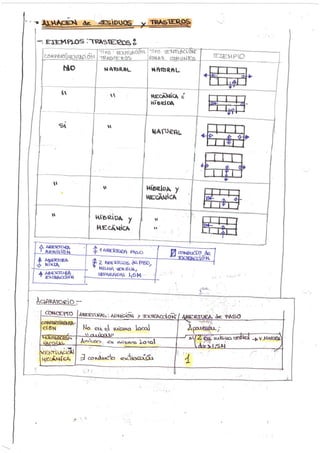 * ALMACÉN de RESIDUOS y TRASTEROS
- EJEMPLOS: TRASTEROS:
COMPARTIMENTACIÓN | TIPO VENTILACIÓN TRASTEROS | TIPO VENTILACIÓN ZONAS COMUNES | EJEMPLO
NO | NATURAL | NATURAL
" | " | MECÁNICA ó HÍBRIDA
SÍ | " | NATURAL
" | " | HÍBRIDA y MECÁNICA
" | HÍBRIDA y MECÁNICA | "
ABERTURA ADMISIÓN
ABERTURA MIXTA
ABERTURA EXTRACCIÓN
1 ABERTURA PASO
2 ABERTURAS de PASO, MISMA VERTICAL, SEPARADAS 1,5M
CONDUCTO de EXTRACCIÓN
ACLARATORIO -
CONCEPTO | ABERTURAS: ADMISIÓN y EXTRACCIÓN | ABERTURA de PASO
No en el mismo local
VENTILACIÓN NATURAL | Ambas en mismo local | 2 en misma vertical
d > 1,5M
VENTILACIÓN MECÁNICA | conducto extracción | 1